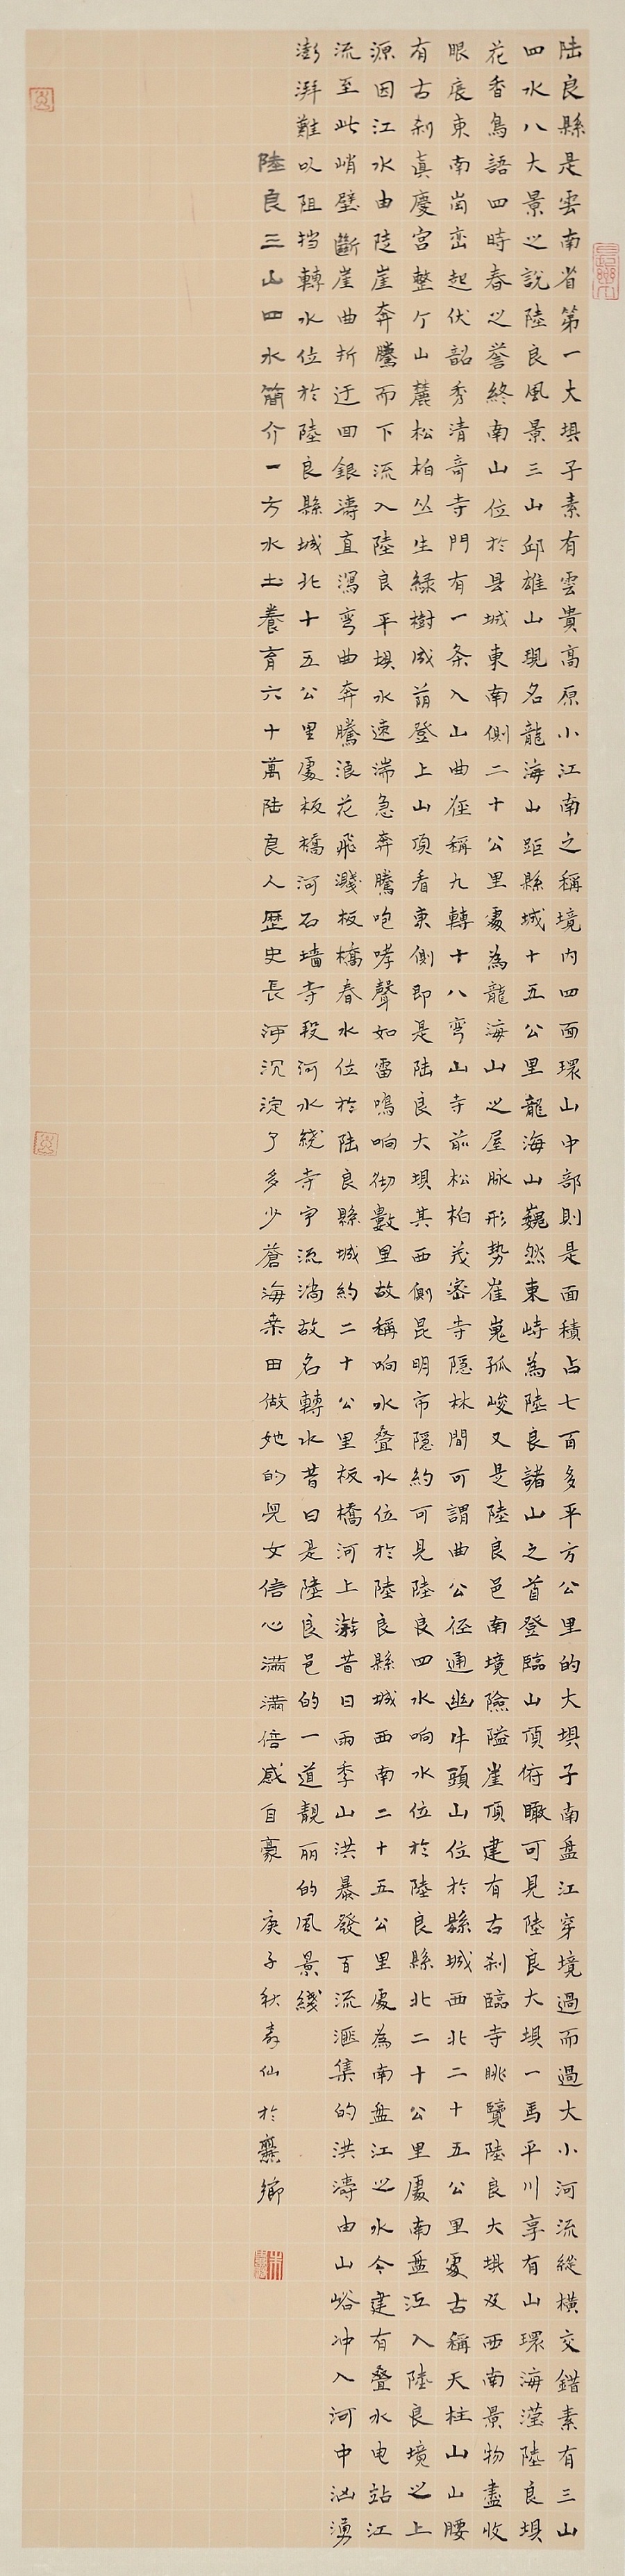 陆良縣是雲南省第一大埧子素有雲貴高原小江南之稱境内四面環山中部則是面積占七百多平方公里的大埧子南盘江穿境過而過大小河流縱横交錯素有三山
四水八大景之説陸良風景三山邱雄山現名龍海山距縣城十五公里龍海山巍然東峙為陸良諸山之首登臨山頂俯瞰可見陸良大坝一馬平川享有山環海滢陸良坝
花香鳥語四時春之誉終南山位於县城東南側二十公里處為龍海山之屋脉形势崔嵬孤峻又是陸良邑南境險隘崖頂建有古刹臨寺眺覽陸良大埧及西南景物盡收
眼底東南崗峦起伏韶秀清奇寺門有一条入山曲径稱九轉十八弯山寺前松柏茂密寺隱林間可謂曲公径通幽牛頭山位於縣城西北二十五公里處古稱天柱山山腰
有古刹真慶宫整个山麓松柏丛生緑樹成荫登上山頂看東側即是陆良大坝其西側昆明市隱約可見陸良四水响水位於陸良縣北二十公里處南盘江入陸良境之上
源因江水由陡崖奔騰而下流入陸良平坝水速湍急奔騰咆哮聲如雷鳴响彻數里故稱响水叠水位於陸良縣城西南二十五公里處為南盘江之水今建有叠水电站江
流至此峭壁斷崖曲折迂回銀濤直瀉弯曲奔騰浪花飛濺板橋春水位於陆良縣城約二十公里板橋河上游昔日雨季山洪暴發百流滙集的洪濤由山峪冲入河中汹湧
澎湃難以阻挡轉水位於陸良縣城北十五公里處板橋河石墙寺段河水绕寺宇流淌故名轉水昔日是陸良邑的一道靚丽的風景綫
陸良三山四水簡介一方水土養育六十萬陆良人歷史長河沉淀了多少蒼海桒田做她的兒女信心滿滿倍感自豪 庚子秋寿仙於爨鄉